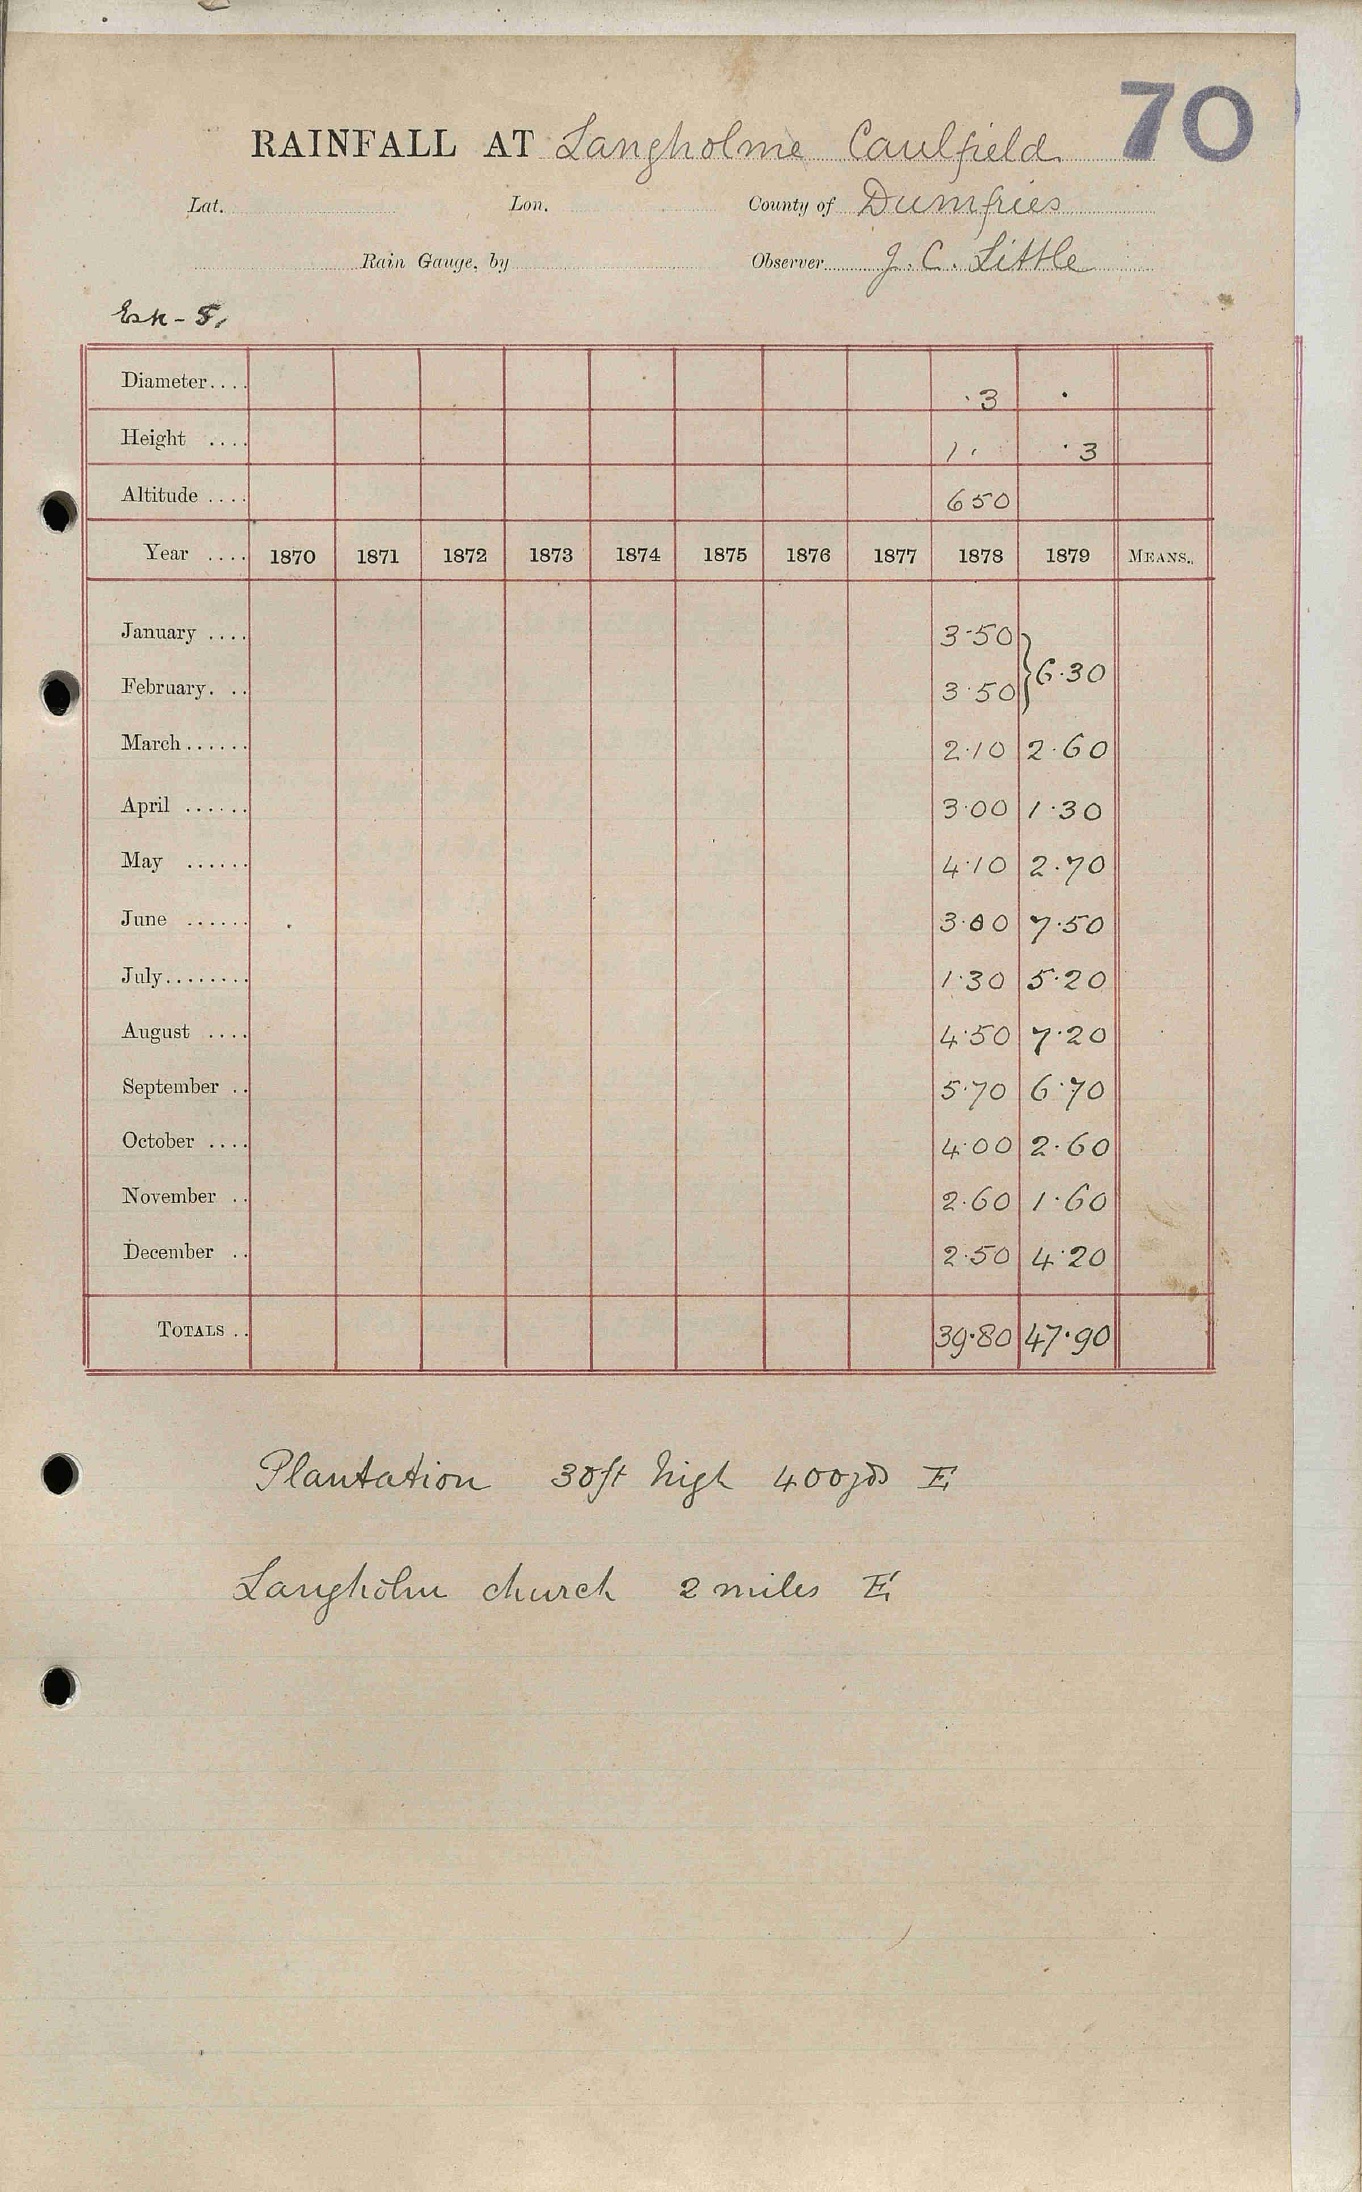 70
RAINFALL AT Langholme Caulfield
Lat. Lon. County of Dumfries
Rain Gauge, by Observer J. C. Little
Esk - 5.
Diameter.... ·3 ·
Height .... 1 · ·3
Altitude .... 650
Year .... 1870 1871 1872 1873 1874 1875 1876 1877 1878 1879 MEANS..
January .... 3·50 } 6·30
February. .. 3·50
March...... 2·10 2·60
April ...... 3·00 1·30
May ...... 4·10 2·70
June ...... 3·00 7·50
July........ 1·30 5·20
August .... 4·50 7·20
September .. 5·70 6·70
October .... 4·00 2·60
November .. 2·60 1·60
December .. 2·50 4·20
TOTALS .. 39·80 47·90
Plantation 30ft high 400yds E
Langholm church 2 miles E